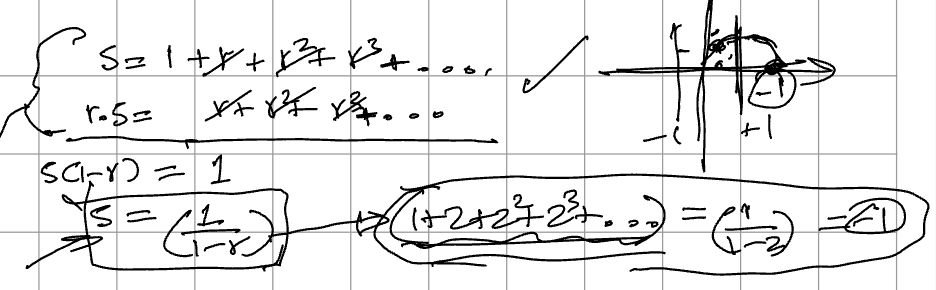 S = 1 + r + r² + r³ + .....
r.S = r + r² + r³ + ...
S(1-r) = 1
S = (1/(1-r)) → (1+2+2²+2³+....) = (1/(1-2)) = -1
-1
+1